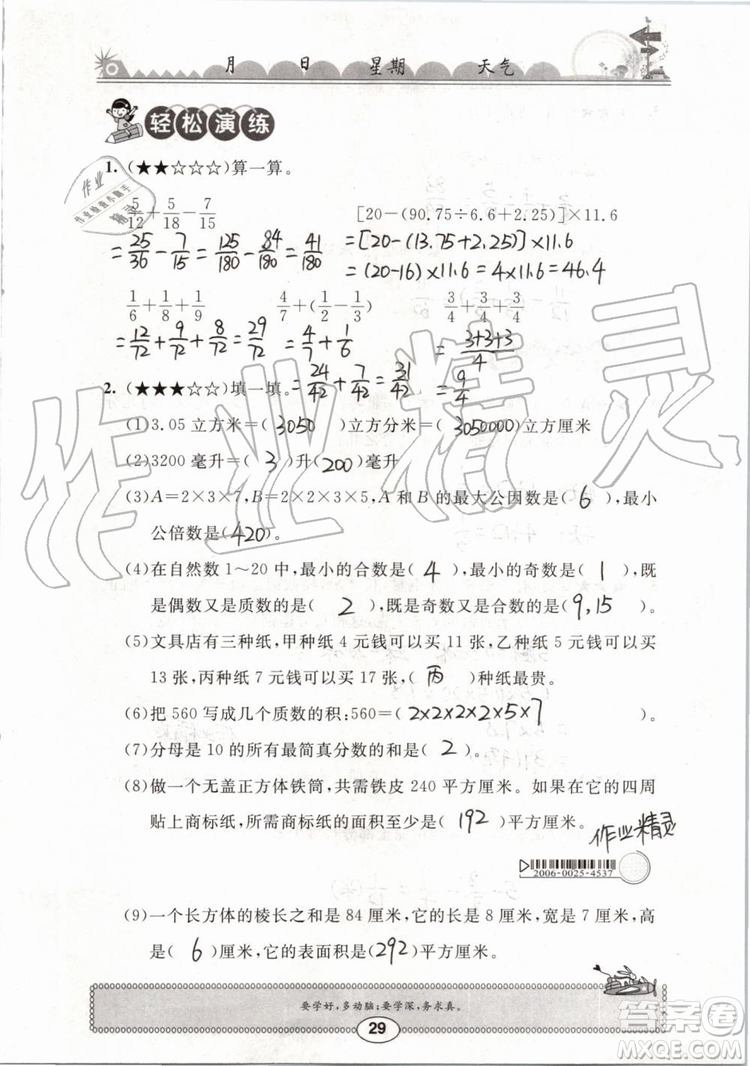 月 日 星期 天气
轻松演练
1. (★★☆☆☆)算一算。
5/12+5/18-7/15 [20-(90.75÷6.6+2.25)]×11.6
=25/36-7/15=125/180-84/180=41/180 =[20-(13.75+2.25)]×11.6
=(20-16)×11.6=4×11.6=46.4
1/6+1/8+1/9 4/7+(1/2-1/3) 3/4+3/4+3/4
=12/72+9/72+8/72=29/72 =4/7+1/6 =(3+3+3)/4
=24/42+7/42=31/42 =9/4
2. (★★★☆☆)填一填。
(1)3.05立方米=(3050)立方分米=(3050000)立方厘米
(2)3200毫升=(3)升(200)毫升
(3)A=2×3×7,B=2×2×3×5,A和B的最大公因数是(6),最小
公倍数是(420)。
(4)在自然数1～20中,最小的合数是(4),最小的奇数是(1),既
是偶数又是质数的是(2),既是奇数又是合数的是(9,15)。
(5)文具店有三种纸,甲种纸4元钱可以买11张,乙种纸5元钱可以买
13张,丙种纸7元钱可以买17张,(丙)种纸最贵。
(6)把560写成几个质数的积:560=(2×2×2×2×5×7)。
(7)分母是10的所有最简真分数的和是(2)。
(8)做一个无盖正方体铁筒,共需铁皮240平方厘米。如果在它的四周
贴上商标纸,所需商标纸的面积至少是(192)平方厘米。
作业精灵
2006-0025-4537
(9)一个长方体的棱长之和是84厘米,它的长是8厘米,宽是7厘米,高
是(6)厘米,它的表面积是(292)平方厘米。
要学好,多动脑;要学深,务求真。
29
作业精灵
答案卷